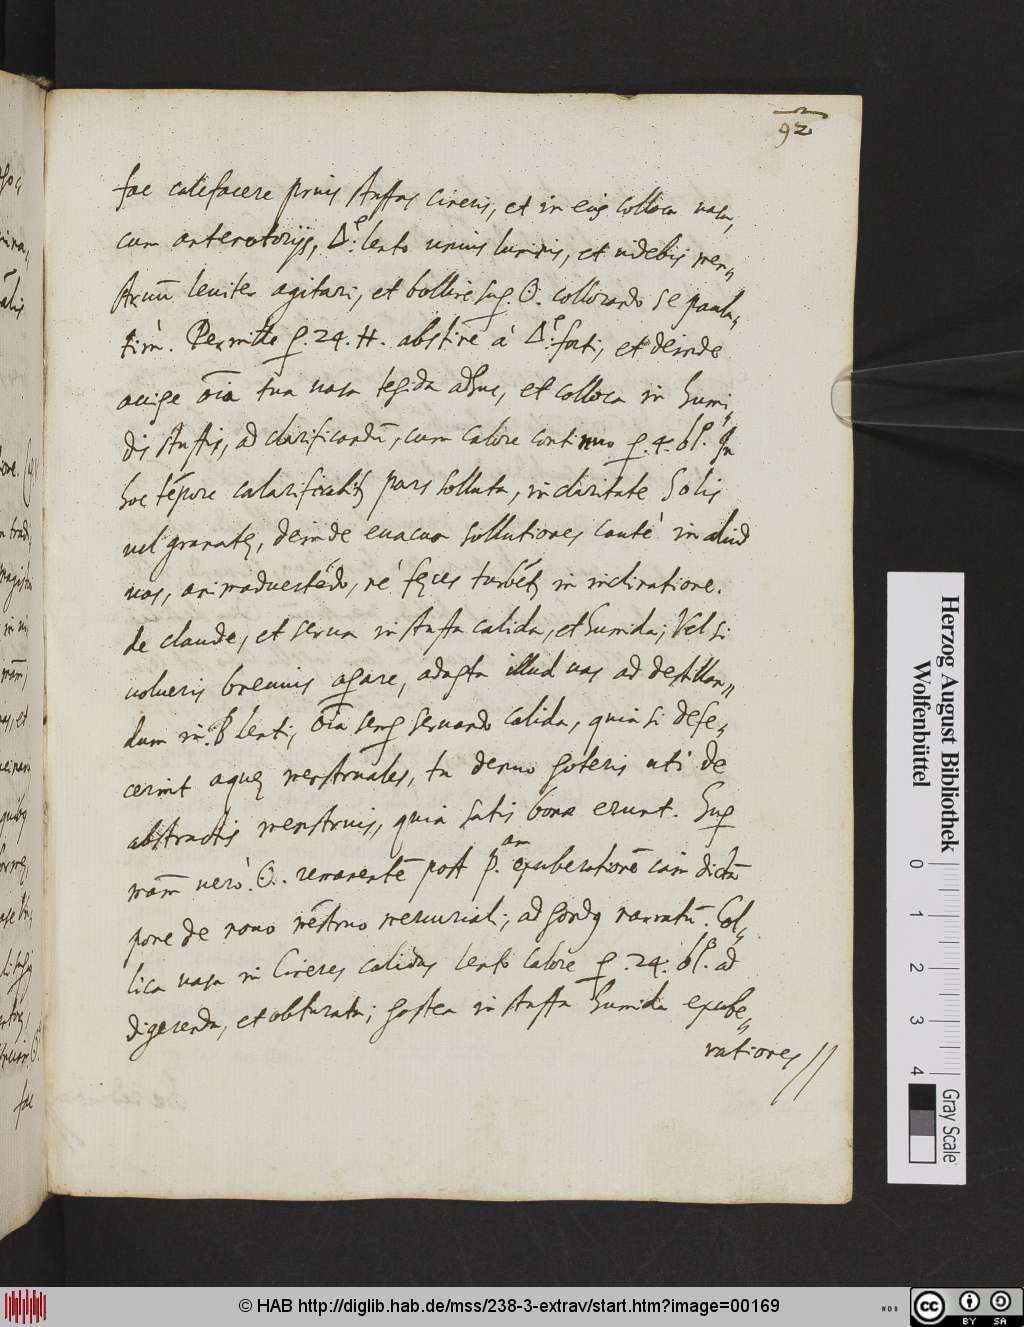 92
fac calefacere prius stuffas cineris, et in eis colloca vasa,
cum antenotorijs, Δ^e: lento unius luminis, et videbis men„
struū leniter agitari, et bollire sup. O. collorando se paula„
tim. Permitte p. 24. H. abstire à Δ^e: forti, et deinde
accipe oīa tua vasa tepida adhuc, et colloca in humi„
dis stuffis, ad clarificandū, cum calore continuo p. 4. di. In
hoc tēpore clarificabitʒ pars solluta, in claritate Solis
vel granatę, deinde evacua sollutiones cautè in aliud
vas, animadvertēdo, nè fęces turbētʒ in inclinatione.
de claude, et serva in stuffa calida, et humida; Vel si
volueris brevius agare, adapta illud vas ad destillan„
dum in B lenti, oīa semp servando calida, quia si defe„
cerint aquę menstruales, tu denuo poteris uti de
abstractis menstruis, quia satis bona erunt. Sup
mam verò O. remanentē post p.^am exuberationē iam dictā
pone de novo mēstruo mercurial; ad pondʒ narratū. Col„
lica vasa in Cineres calidas lento calore p. 24. di. ad
digerenda, et obturata; postea in stuffa humida exube„
rationes //
Herzog August Bibliothek
Wolfenbüttel
0 1 2 3 4
Gray Scale
© HAB http://diglib.hab.de/mss/238-3-extrav/start.htm?image=00169
cc BY SA